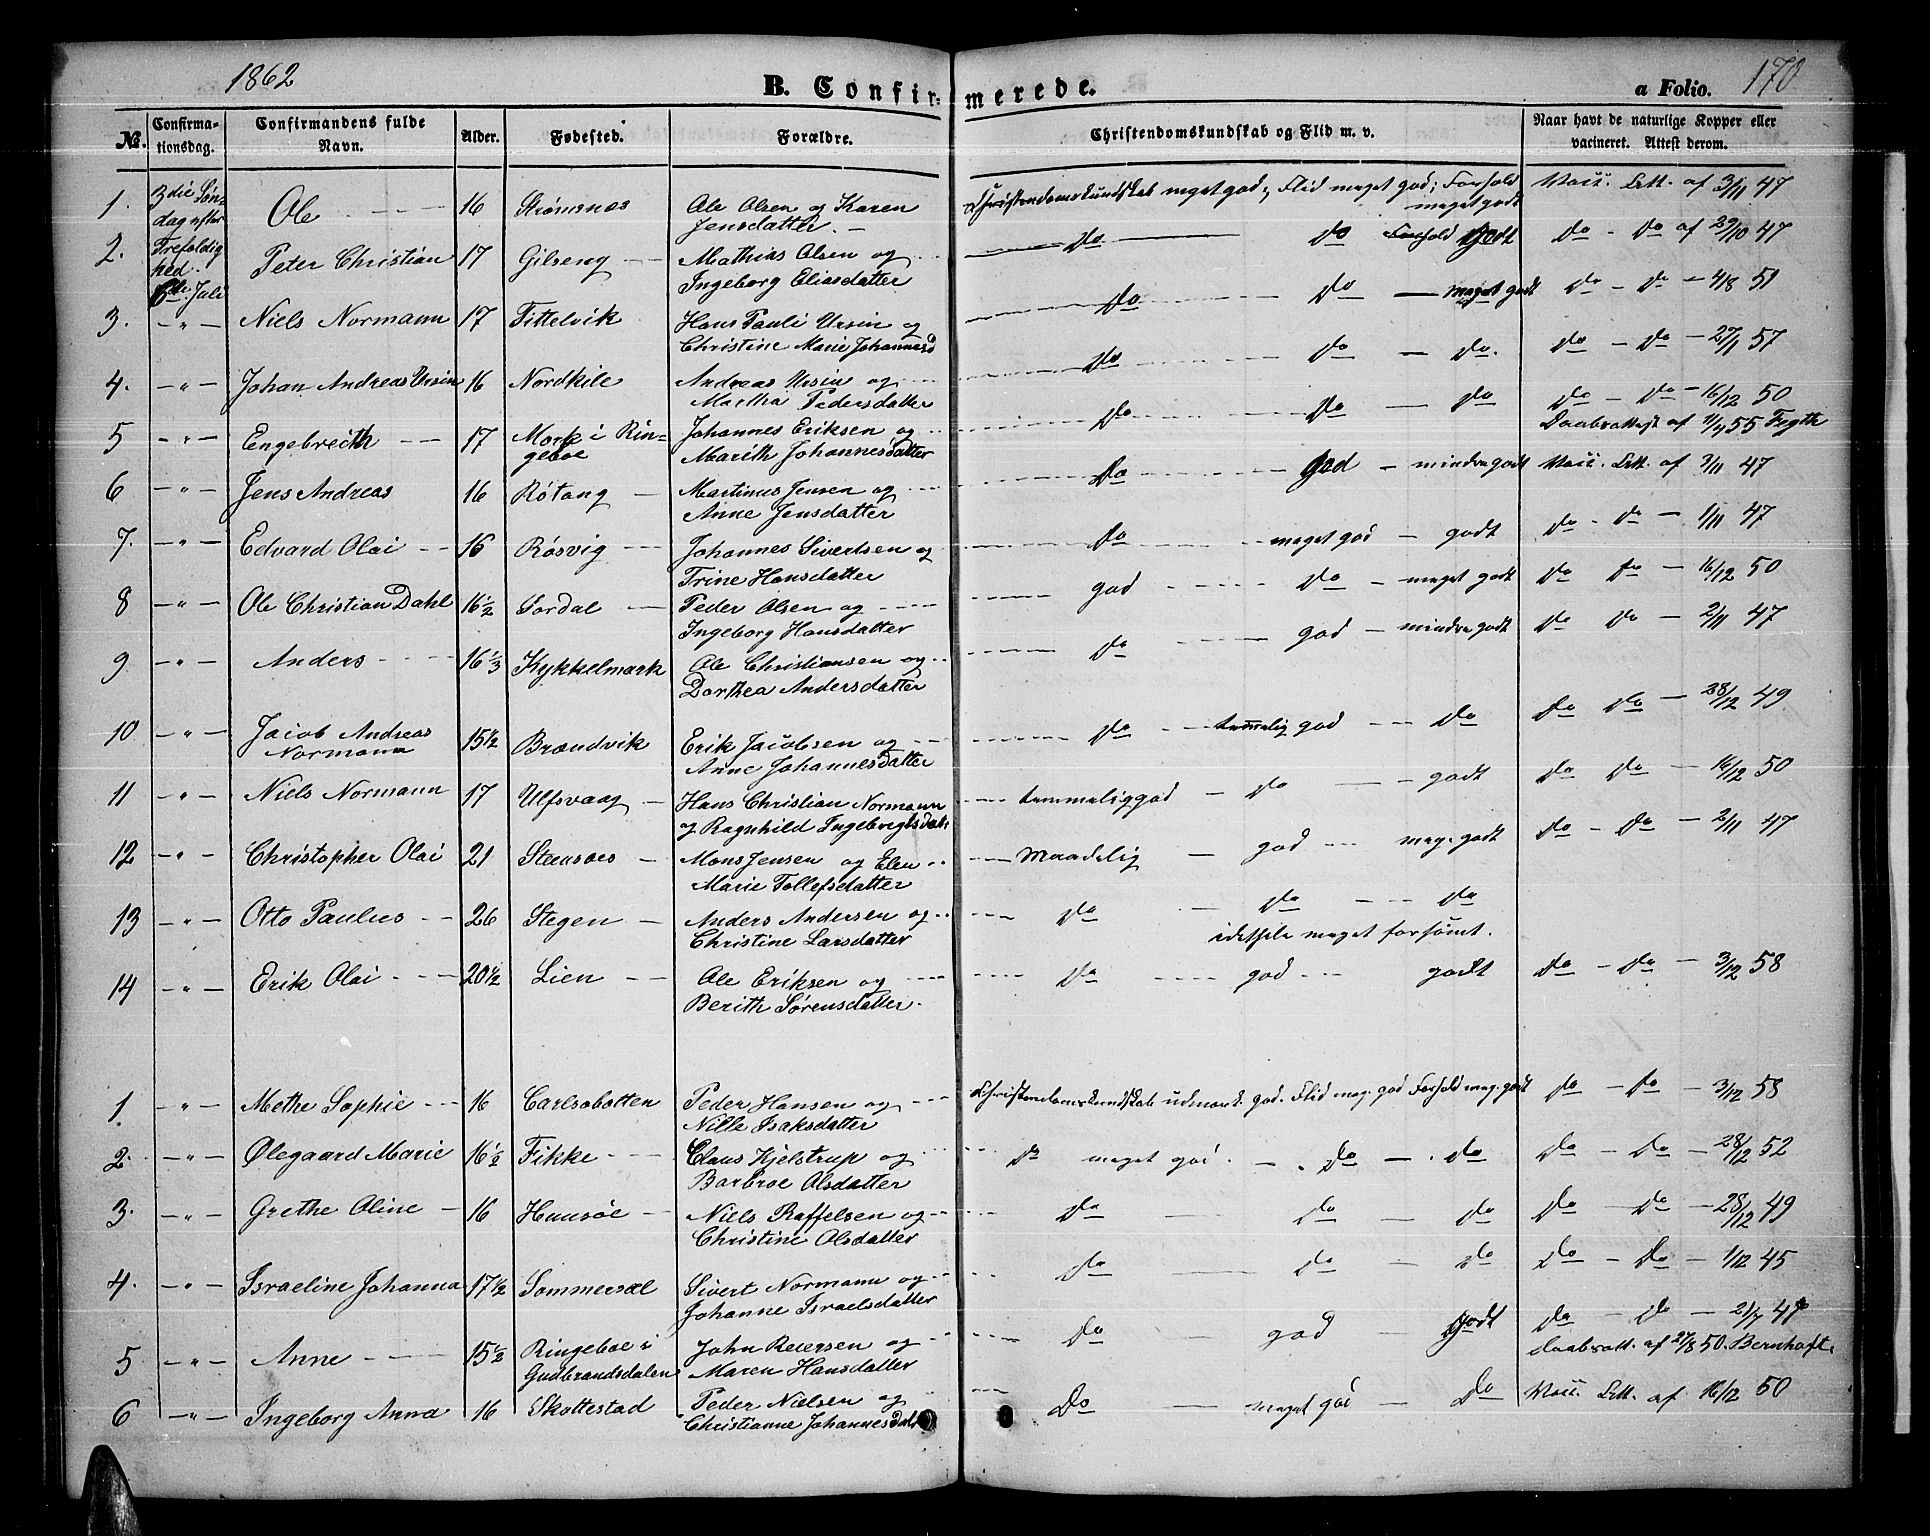 1862 B. Confirmerede. a Folio. 170
No. Confirmationsdag. Confirmandens fulde Navn. Alder. Fødested. Forældre. Christendomskundskab og Flid m. v. Naar havt de naturlige Kopper eller vacineret. Attest derom.
1. 3die Søn- Ole 16 Strømsnes Ole Olsen og Karen Christendomskundskab meget god; Flid meget god; Forhold Vacc. Att. af 3/11 47
dag efter Jensdatter. meget godt
2. Trefoldig Peter Christian 17 Gilseng Mathias Olsen og Do Do Forhold godt Do - Do af 29/10 47
hed. Ingeborg Eliasdatter
6te Juli
3. - " - Niels Normann 17 Tittelvik Hans Pauli Ursin og Do Do - meget godt Do - Do - 4/8 51
Christine Marie Johannesd
4. - " - Johan Andreas Ursin 16 Nordkile Andreas Ursin og Do Do - Do. Do - Do - 27/1 57
Martha Pedersdatter
5 - " - Engebreith 17 Mork i Rin- Johannes Eriksen og Do Do - Do Do - Do - 16/12 50
geboe Marith Johannesdatter Daabsattest af 11/4 55
6 - " - Jens Andreas 16 Røtang Martinus Jensen og Do god - mindre godt Vacc. Att. af 3/11 47
Anne Jensdatter
7. - " - Edvard Olai 16 Røsvig Johannes Sivertsen og Do meget god - godt Do - Do - 1/11 47
Trine Hansdatter
8 - " - Ole Christian Dahl 16 1/2 Sørdal Peder Olsen og god Do - meget godt Do Do - 16/12 50
Ingeborg Hansdatter
9 - " - Anders 16 1/3 Kykkelmark Ole Christiansen og Do god - mindre godt Do Do - 2/11 47
Dorthea Andersdatter
10 - " - Jacob Andreas 15 1/2 Brændvik Erik Jacobsen og Do temmelig god - Do Do Do - 28/12 49
Normann Anne Johannesdatter
11 - " - Niels Normann 17 Ulfsvaag Hans Christian Normann temmelig god - Do - godt Do Do - 16/12 50
og Ragnhild Ingebregtsdatr
12 - " - Christopher Olai 21 Mons Jensen og Elen Maadelig - god - meg. godt Do - Do - 2/11 47
Marie Tollefsdatter
13 - " - Otto Paulus 26 Stegen Anders Andersen og Do - Do - Do
Christine Larsdatter idethele meget forsømt.
14 - " - Erik Olai 20 1/2 Lien Ole Eriksen og Do god godt Do - Do - 3/12 58
Berith Sørensdatter.
1. - " - Methe Sophie 16 Carlsobotten Peder Hansen og Christendomskundskab udmærk. god. Flid meg. god Forhold meg. godt Do - Do - 3/12 58
Nille Isaksdatter
2. - " - Ølegaard Marie 16 1/2 Fikke Claus Kjelstrup og Do meget god. - Do - Do Do - Do - 28/12 52
Barbroe Olsdatter
3. - " - Grethe Oline 16 Hunsøe Niels Raffelsen og Do - Do - Do Do - Do - 28/12 49
Christine Olsdatter
4. - " - Israeline Johanna 17 1/2 Sommersæl Sivert Normann og Do - Do - Do Do - Do - 1/12 45
Johanne Israelsdatter
5 - " - Anne 15 1/2 Ringeboe i John Reiersen og Do - god - godt Do - Do - 21/7 47
Gudbrandsdalen Maren Hansdatter Daabsatt. af 27/8 50. Bernhoft.
6 - " - Ingeborg Anna 16 Skottestad Peder Nielsen og Do - meget god - Do Vacc. Att. af 16/12 50
Christianne Johannesdatr